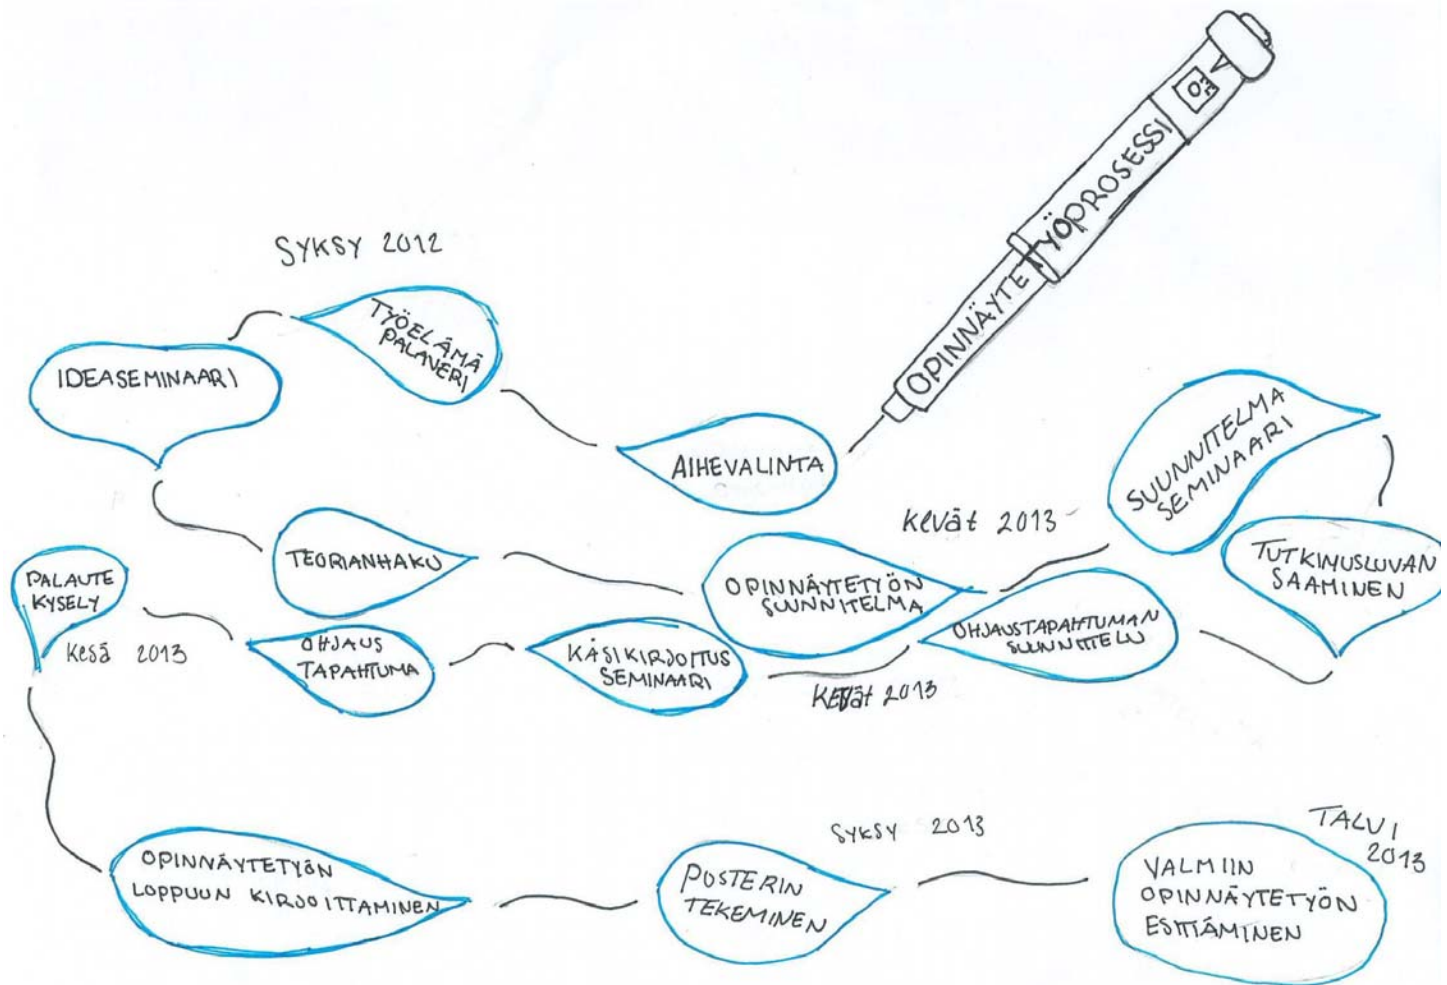 OPINNÄYTETYÖPROSESSI
SYKSY 2012
TYÖELÄMÄ
PALAVERI
IDEASEMINAARI
AIHEVALINTA
SUUNNITELMA
SEMINAARI
KEVÄT 2013
TEORIANHAKU
OPINNÄYTETYÖN
SUUNNITELMA
TUTKIMUSLUVAN
SAAMINEN
PALAUTE
KYSELY
KESÄ 2013
OHJAUS
TAPAHTUMA
KÄSIKIRJOITUS
SEMINAARI
OHJAUSTAPAHTUMAN
SUUNNITTELU
KEVÄT 2013
OPINNÄYTETYÖN
LOPPUUN KIRJOITTAMINEN
SYKSY 2013
POSTERIN
TEKEMINEN
TALVI
2013
VALMIIN
OPINNÄYTETYÖN
ESITTÄMINEN